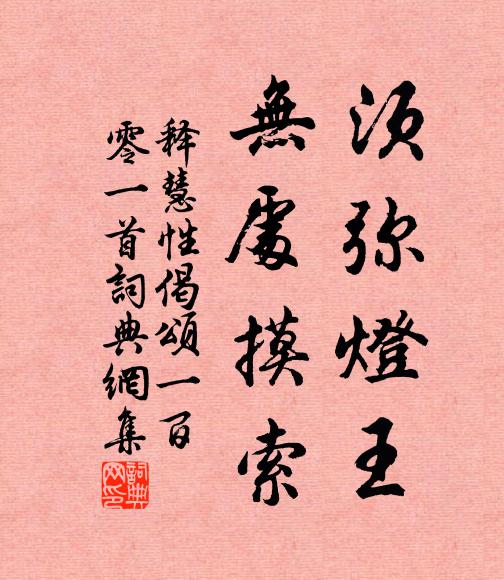 須弥燈王
無處摸索
释慧性偈頌一百
零一首詞典網集
詞典网印